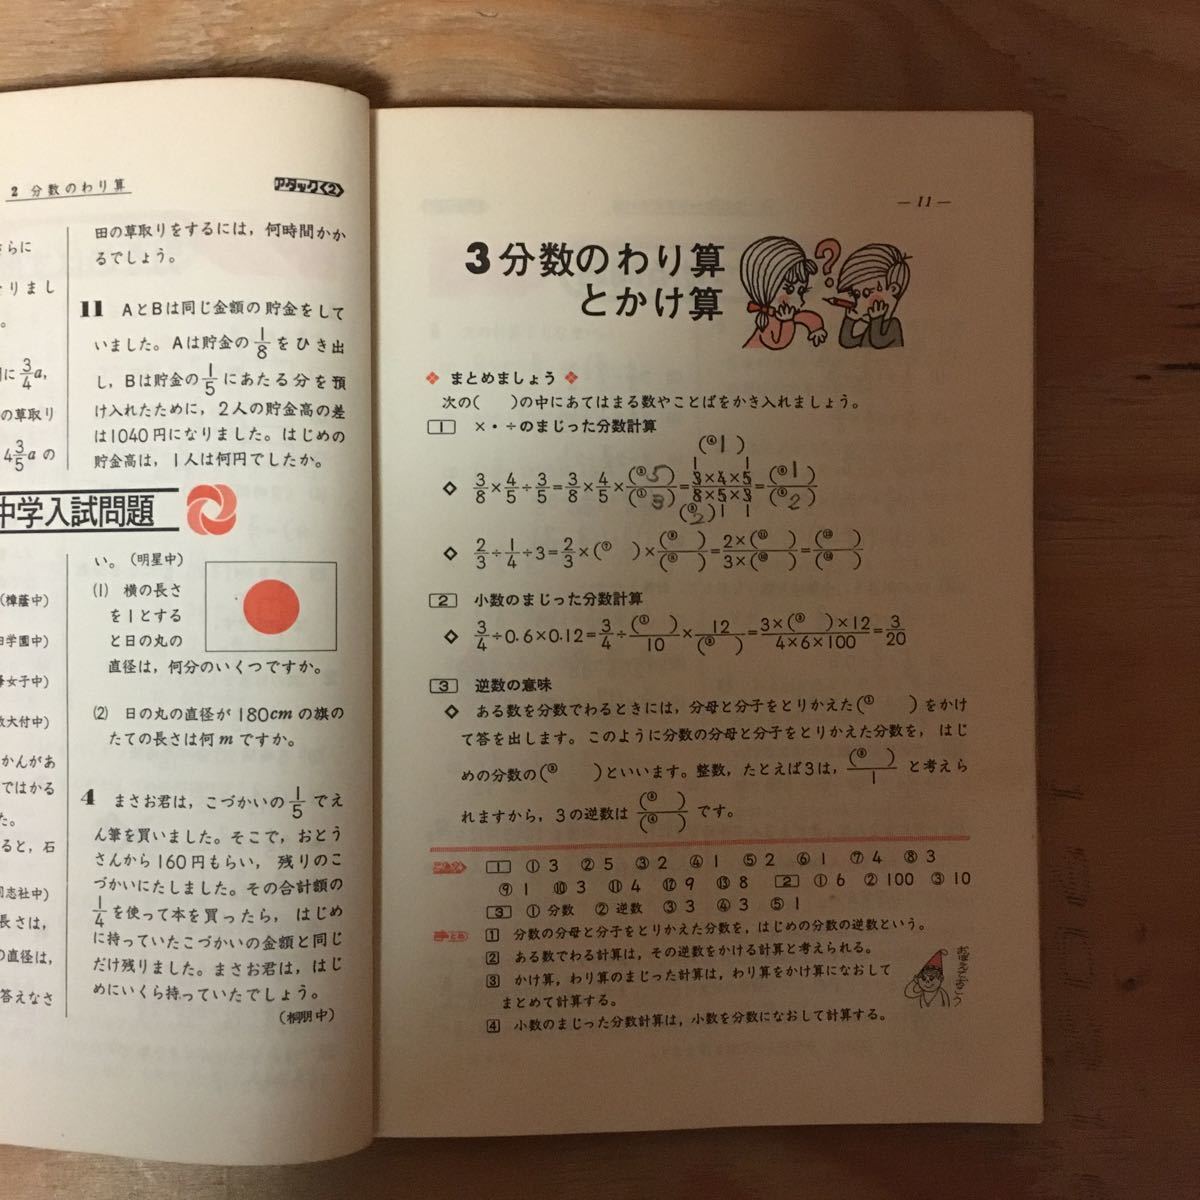 2 分数のわり算
アタック〈2〉
さらに
をりまし
。
引に3/4a,
の草取り
4 3/5aの
中学入試問題
(樟蔭中)
田学園中)
女子中)
大付中)
かんがあ
ではかる
た。
ると，石
同志社中)
長さは，
の直径は，
答えなさ
田の草取りをするには，何時間かか
るでしょう。
11 AとBは同じ金額の貯金をして
いました。Aは貯金の1/8をひき出
し，Bは貯金の1/5にあたる分を預
け入れたために，2人の貯金高の差
は1040円になりました。はじめの
貯金高は，1人は何円でしたか。
い。(明星中)
(1) 横の長さ
を1とする
と日の丸の
直径は，何分のいくつですか。
(2) 日の丸の直径が180cmの旗の
たての長さは何mですか。
4 まさお君は，こづかいの1/5でえ
ん筆を買いました。そこで，おとう
さんから160円もらい，残りのこ
づかいにたしました。その合計額の
1/4を使って本を買ったら，はじめ
に持っていたこづかいの金額と同じ
だけ残りました。まさお君は，はじ
めにいくら持っていたでしょう。
(桐朋中)
— 11 —
3 分数のわり算
とかけ算
?
❖ まとめましょう ❖
次の( )の中にあてはまる数やことばをかき入れましょう。
1 ×・÷のまじった分数計算
(④1)
◇ 3/8×4/5÷3/5=3/8×4/5×(②5)/(①3)=3×4×5/8×5×3=(⑥1)/(⑤2)
(③2) 1 1
◇ 2/3÷1/4÷3=2/3×(⑦ )×(⑨ )/(⑧ )=2×(⑪ )/3×(⑩ )=(⑬ )/(⑫ )
2 小数のまじった分数計算
◇ 3/4÷0.6×0.12=3/4÷(① )/10×12/(② )=3×(③ )×12/4×6×100=3/20
3 逆数の意味
◇ ある数を分数でわるときには，分母と分子をとりかえた(① )をかけ
て答を出します。このように分数の分母と分子をとりかえた分数を，はじ
めの分数の(② )といいます。整数，たとえば3は，(③ )/1 と考えら
れますから，3の逆数は(⑤ )/(④ )です。
こたえ 1 ①3 ②5 ③2 ④1 ⑤2 ⑥1 ⑦4 ⑧3
⑨1 ⑩3 ⑪4 ⑫9 ⑬8 2 ①6 ②100 ③10
3 ①分数 ②逆数 ③3 ④3 ⑤1
まとめ 1 分数の分母と分子をとりかえた分数を，はじめの分数の逆数という。
2 ある数でわる計算は，その逆数をかける計算と考えられる。
3 かけ算，わり算のまじった計算は，わり算をかけ算になおして
まとめて計算する。
4 小数のまじった分数計算は，小数を分数になおして計算する。
おぼえておこう